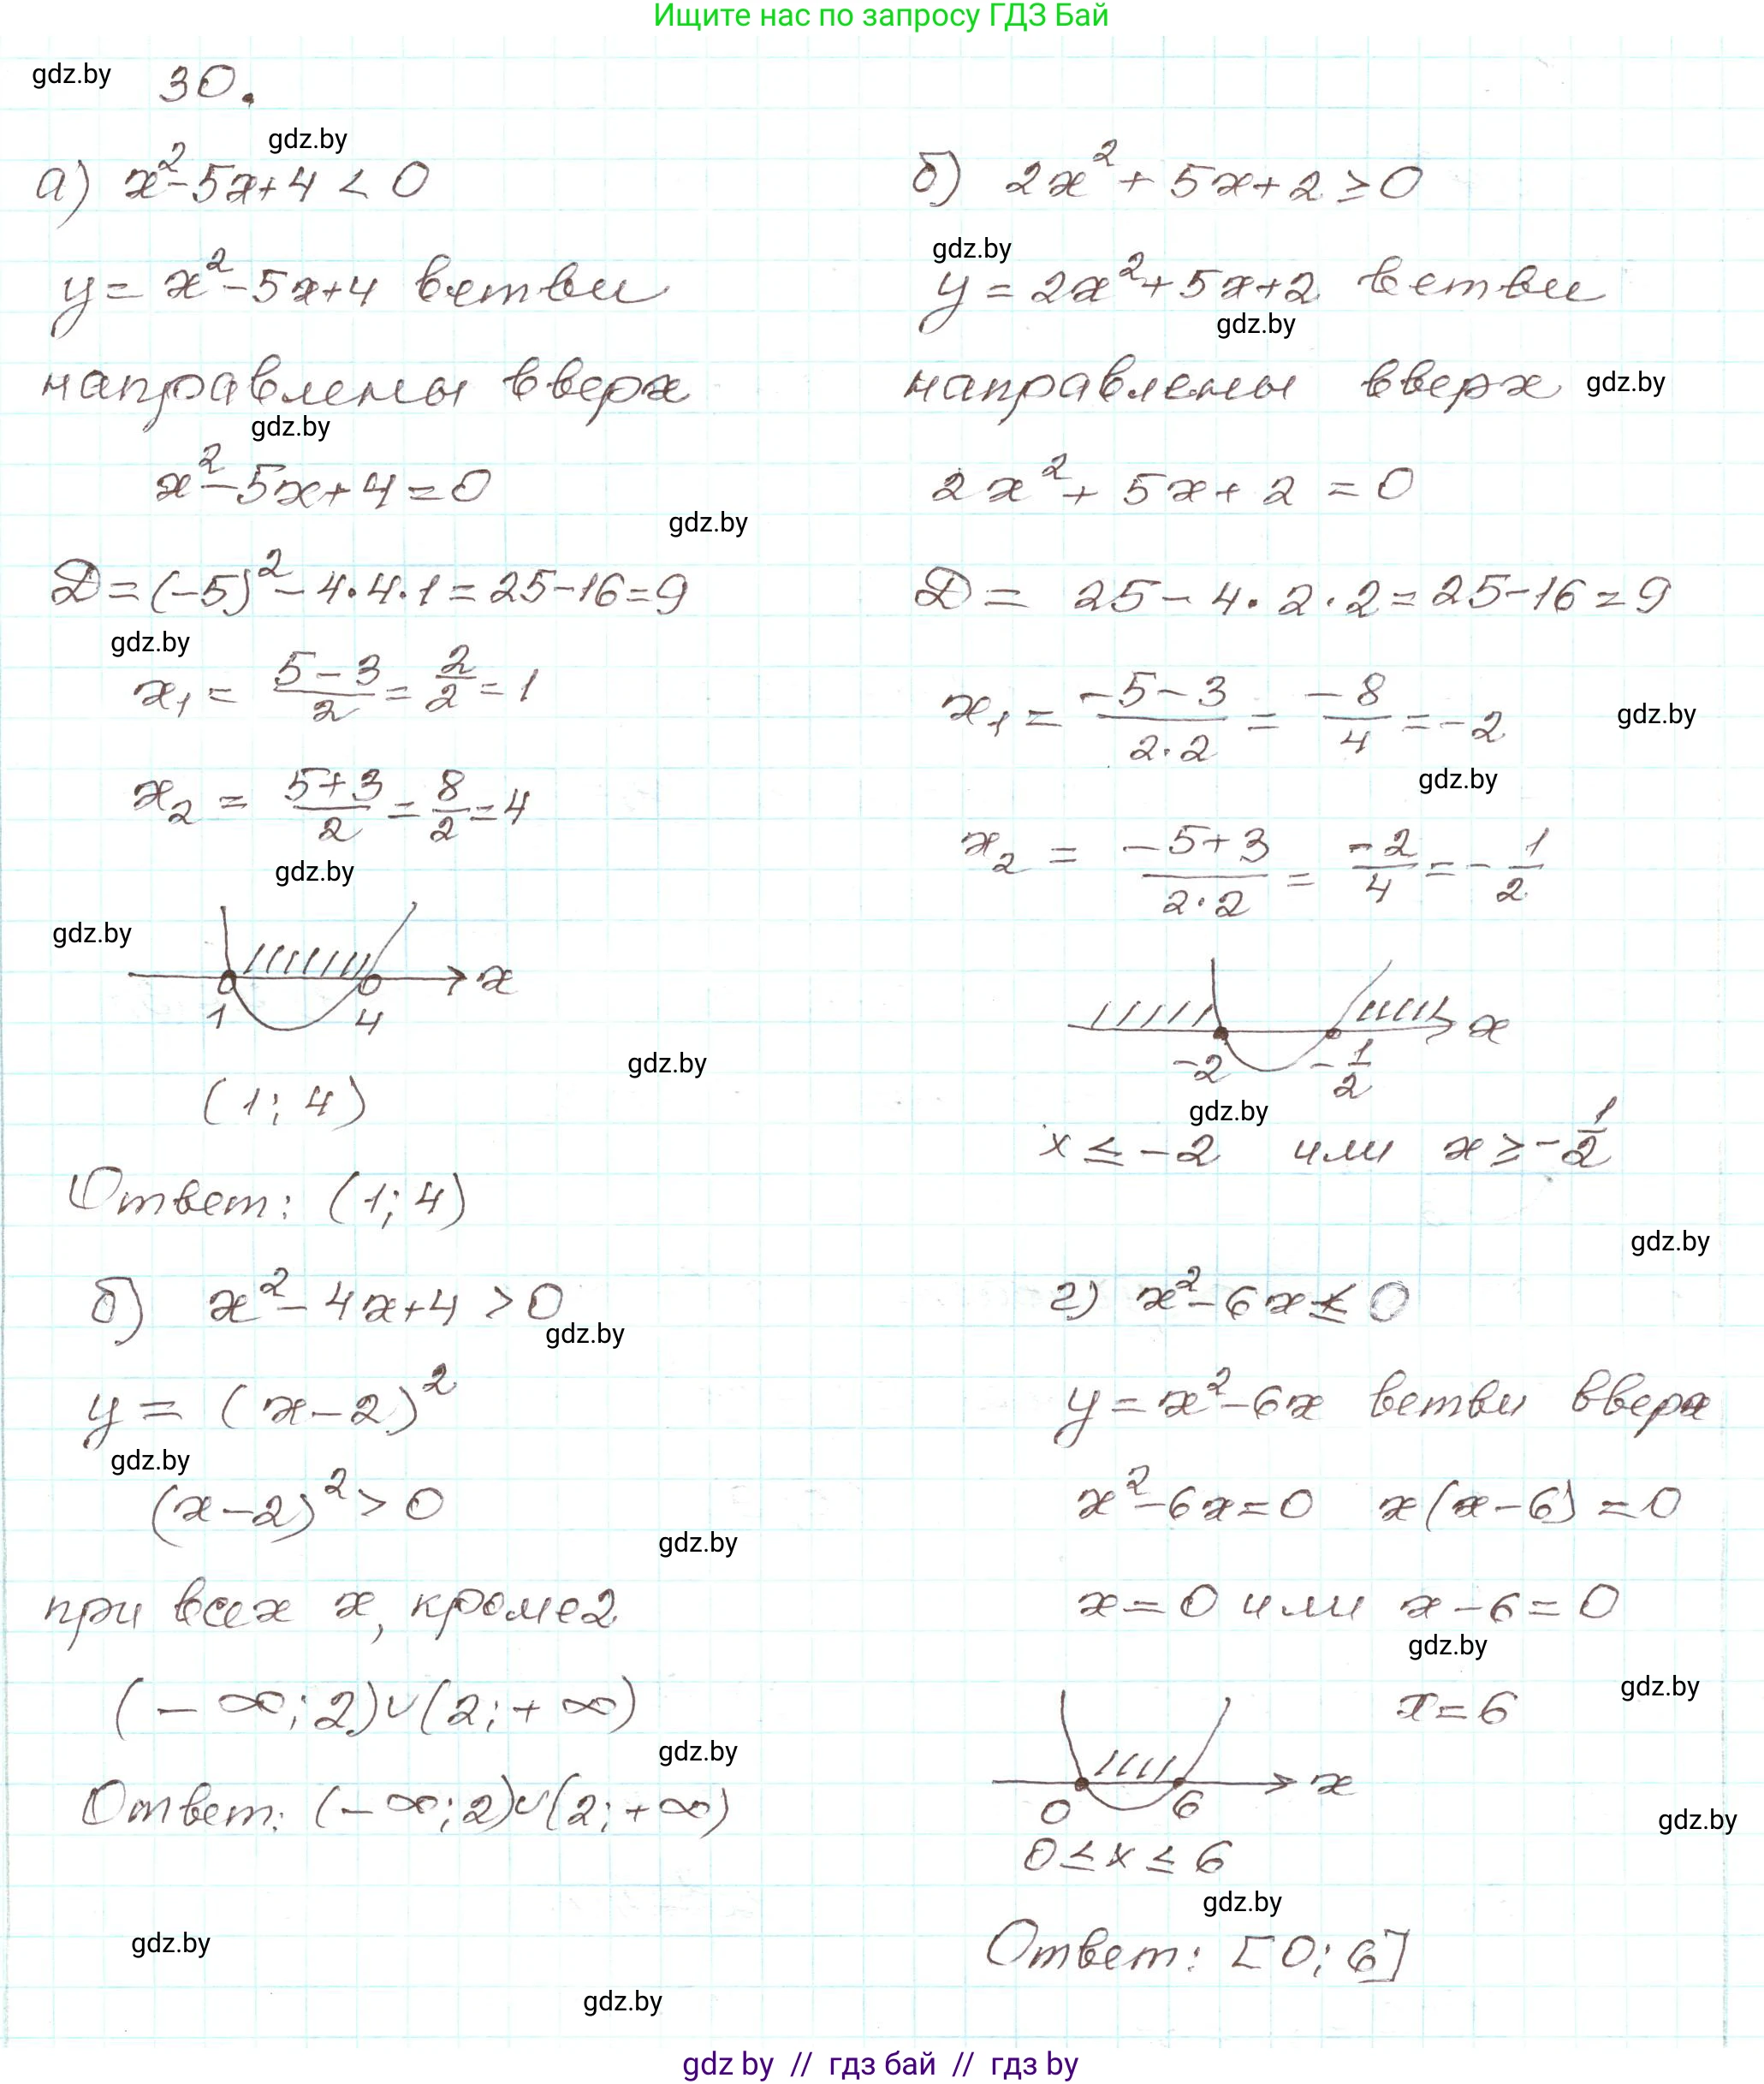 Ищите нас по запросу ГДЗ Бай
gdz.by
30.
gdz.by
а) x²-5x+4 < 0
y = x²-5x+4 ветви
направлены вверх
gdz.by
x²-5x+4=0
gdz.by
D=(-5)²-4·4·1=25-16=9
gdz.by
x₁ = (5-3)/2 = 2/2 = 1
x₂ = (5+3)/2 = 8/2 = 4
gdz.by
gdz.by
x
1 4
gdz.by
(1; 4)
Ответ: (1; 4)
б) 2x² + 5x+2 ≥ 0
gdz.by
y = 2x²+5x+2 ветви
gdz.by
направлены вверх gdz.by
2x² + 5x + 2 = 0
D = 25 - 4·2·2 = 25-16 = 9
x₁ = (-5-3)/(2·2) = -8/4 = -2
gdz.by
gdz.by
x₂ = (-5+3)/(2·2) = -2/4 = -1/2
x
-2 -1/2
gdz.by
x ≤ -2 или x ≥ -1/2
gdz.by
б) x²-4x+4 > 0
gdz.by
y = (x-2)²
gdz.by
(x-2)² > 0
gdz.by
при всех x, кроме 2
(-∞; 2)∪(2; +∞)
gdz.by
Ответ: (-∞; 2)∪(2; +∞)
gdz.by
gdz.by
г) x²-6x ≤ 0
y = x²-6x ветви вверх
x²-6x=0 x(x-6)=0
x=0 или x-6=0
gdz.by
gdz.by
x=6
x
0 6
gdz.by
0 ≤ x ≤ 6
gdz.by
Ответ: [0; 6]
gdz by // гдз бай // гдз by